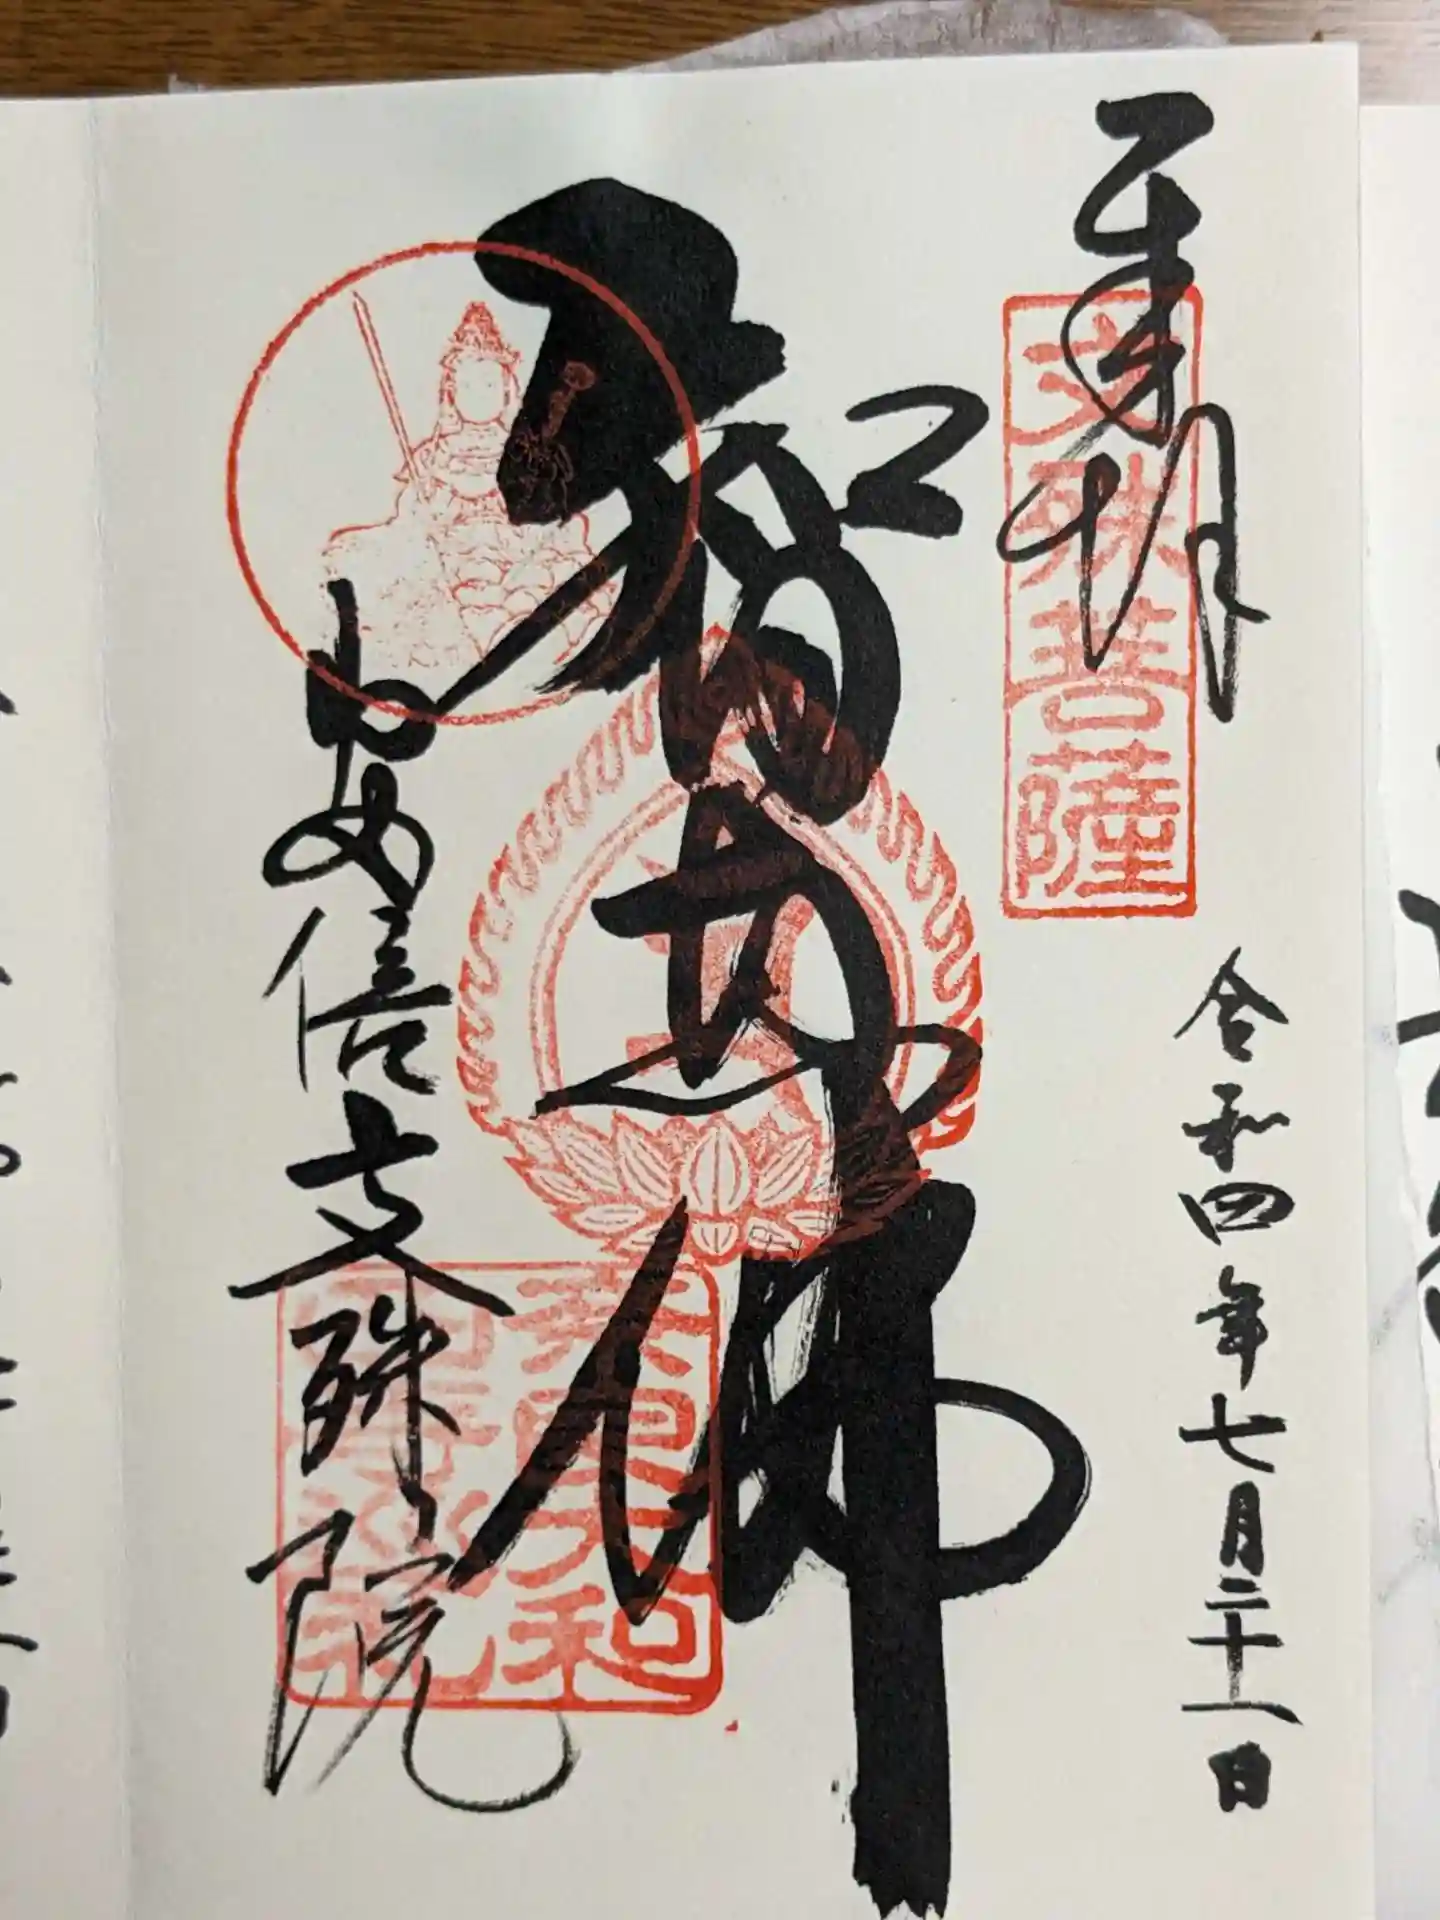 奉拝
文殊菩薩
令和四年七月二十一日
智恵佛
安倍文殊院